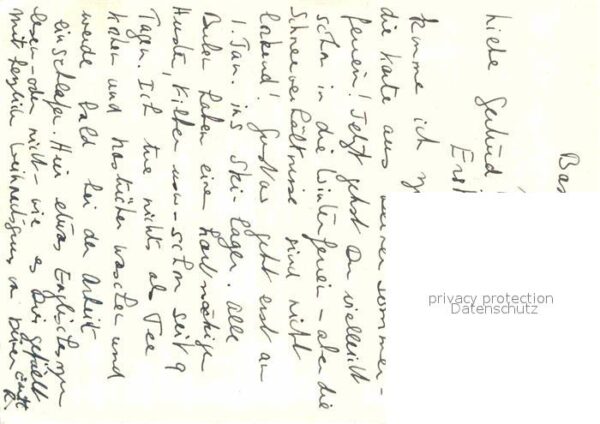 Bas
Liebe Gertrud
Erst
komme ich
die Karte aus meiner Sommer-
ferien! Jetzt gehst Du vielleicht
schon in die Winterferien - aber die
Schneeverhältnisse sind nicht
lockend! Gustav geht erst am
1. Jan. ins Ski-lager. Alle
haben einen hartnäckigen
Husten, Kälten usw - schon seit 9
Tagen. Ich tue nichts als Tee
kochen und waschen und
werde bald bei der Arbeit
einschlafen. Hier etwas Englisches zu
lesen - oder nicht - wie es Dir gefällt
mit herzlich Weihnachtsgruss von Deiner
R.
privacy protection
Datenschutz